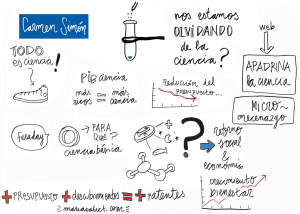 Carmen Simón
nos estamos
OLVIDANDO
de la
ciencia?
web
APADRINA
la ciencia
MICRO-
mecenazgo
TODO
es ciencia!
PIB ciencia
más = más
ricos = ciencia
REDUCCIÓN DEL
PRESUPUESTO...
faraday?
PARA
QUÉ?
ciencia básica
?
retorno
social
&
economía
crecimiento
bienestar
+ PRESUPUESTO + descubrimientos = + patentes